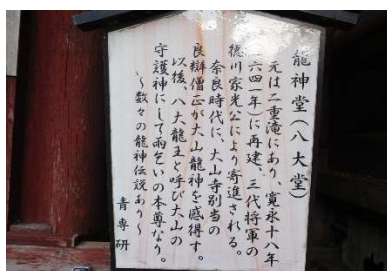 龍神堂(八大堂)
元は二重滝にあり、寛永十八年
(一六四一年)に再建、三代将軍の
徳川家光公により寄進される。
奈良時代に、大山寺別当の
良辯僧正が大山龍神を感得す。
以後、八大龍王と呼び大山の
守護神にして雨乞いの本尊なり。
〜数々の龍神伝説あり〜
青専研